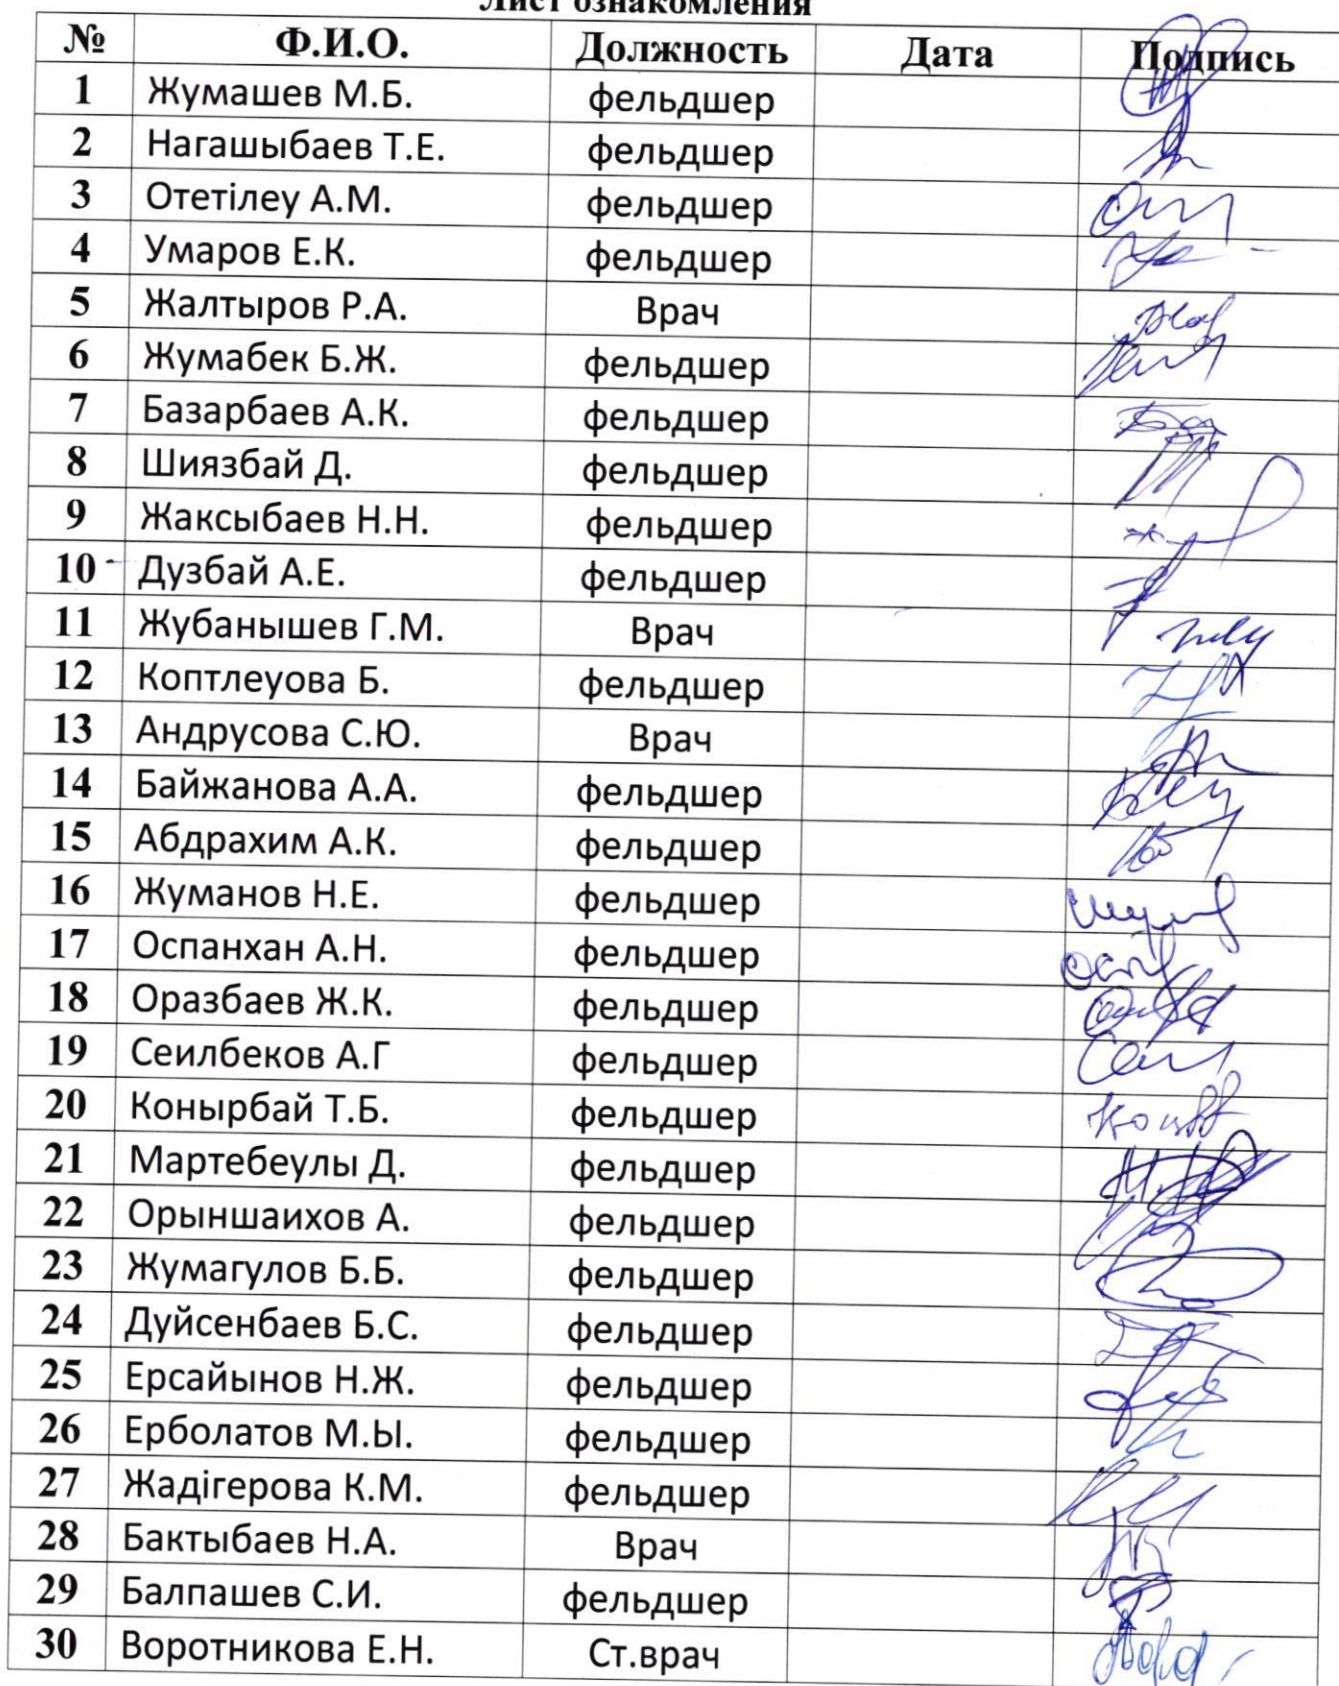 Лист ознакомления
№ Ф.И.О. Должность Дата Подпись
1 Жумашев М.Б. фельдшер
2 Нагашыбаев Т.Е. фельдшер
3 Отетілеу А.М. фельдшер
4 Умаров Е.К. фельдшер
5 Жалтыров Р.А. Врач
6 Жумабек Б.Ж. фельдшер
7 Базарбаев А.К. фельдшер
8 Шиязбай Д. фельдшер
9 Жаксыбаев Н.Н. фельдшер
10 Дузбай А.Е. фельдшер
11 Жубанышев Г.М. Врач
12 Коптлеуова Б. фельдшер
13 Андрусова С.Ю. Врач
14 Байжанова А.А. фельдшер
15 Абдрахим А.К. фельдшер
16 Жуманов Н.Е. фельдшер
17 Оспанхан А.Н. фельдшер
18 Оразбаев Ж.К. фельдшер
19 Сеилбеков А.Г фельдшер
20 Конырбай Т.Б. фельдшер
21 Мартебеулы Д. фельдшер
22 Орыншаихов А. фельдшер
23 Жумагулов Б.Б. фельдшер
24 Дуйсенбаев Б.С. фельдшер
25 Ерсайынов Н.Ж. фельдшер
26 Ерболатов М.Ы. фельдшер
27 Жадігерова К.М. фельдшер
28 Бактыбаев Н.А. Врач
29 Балпашев С.И. фельдшер
30 Воротникова Е.Н. Ст.врач